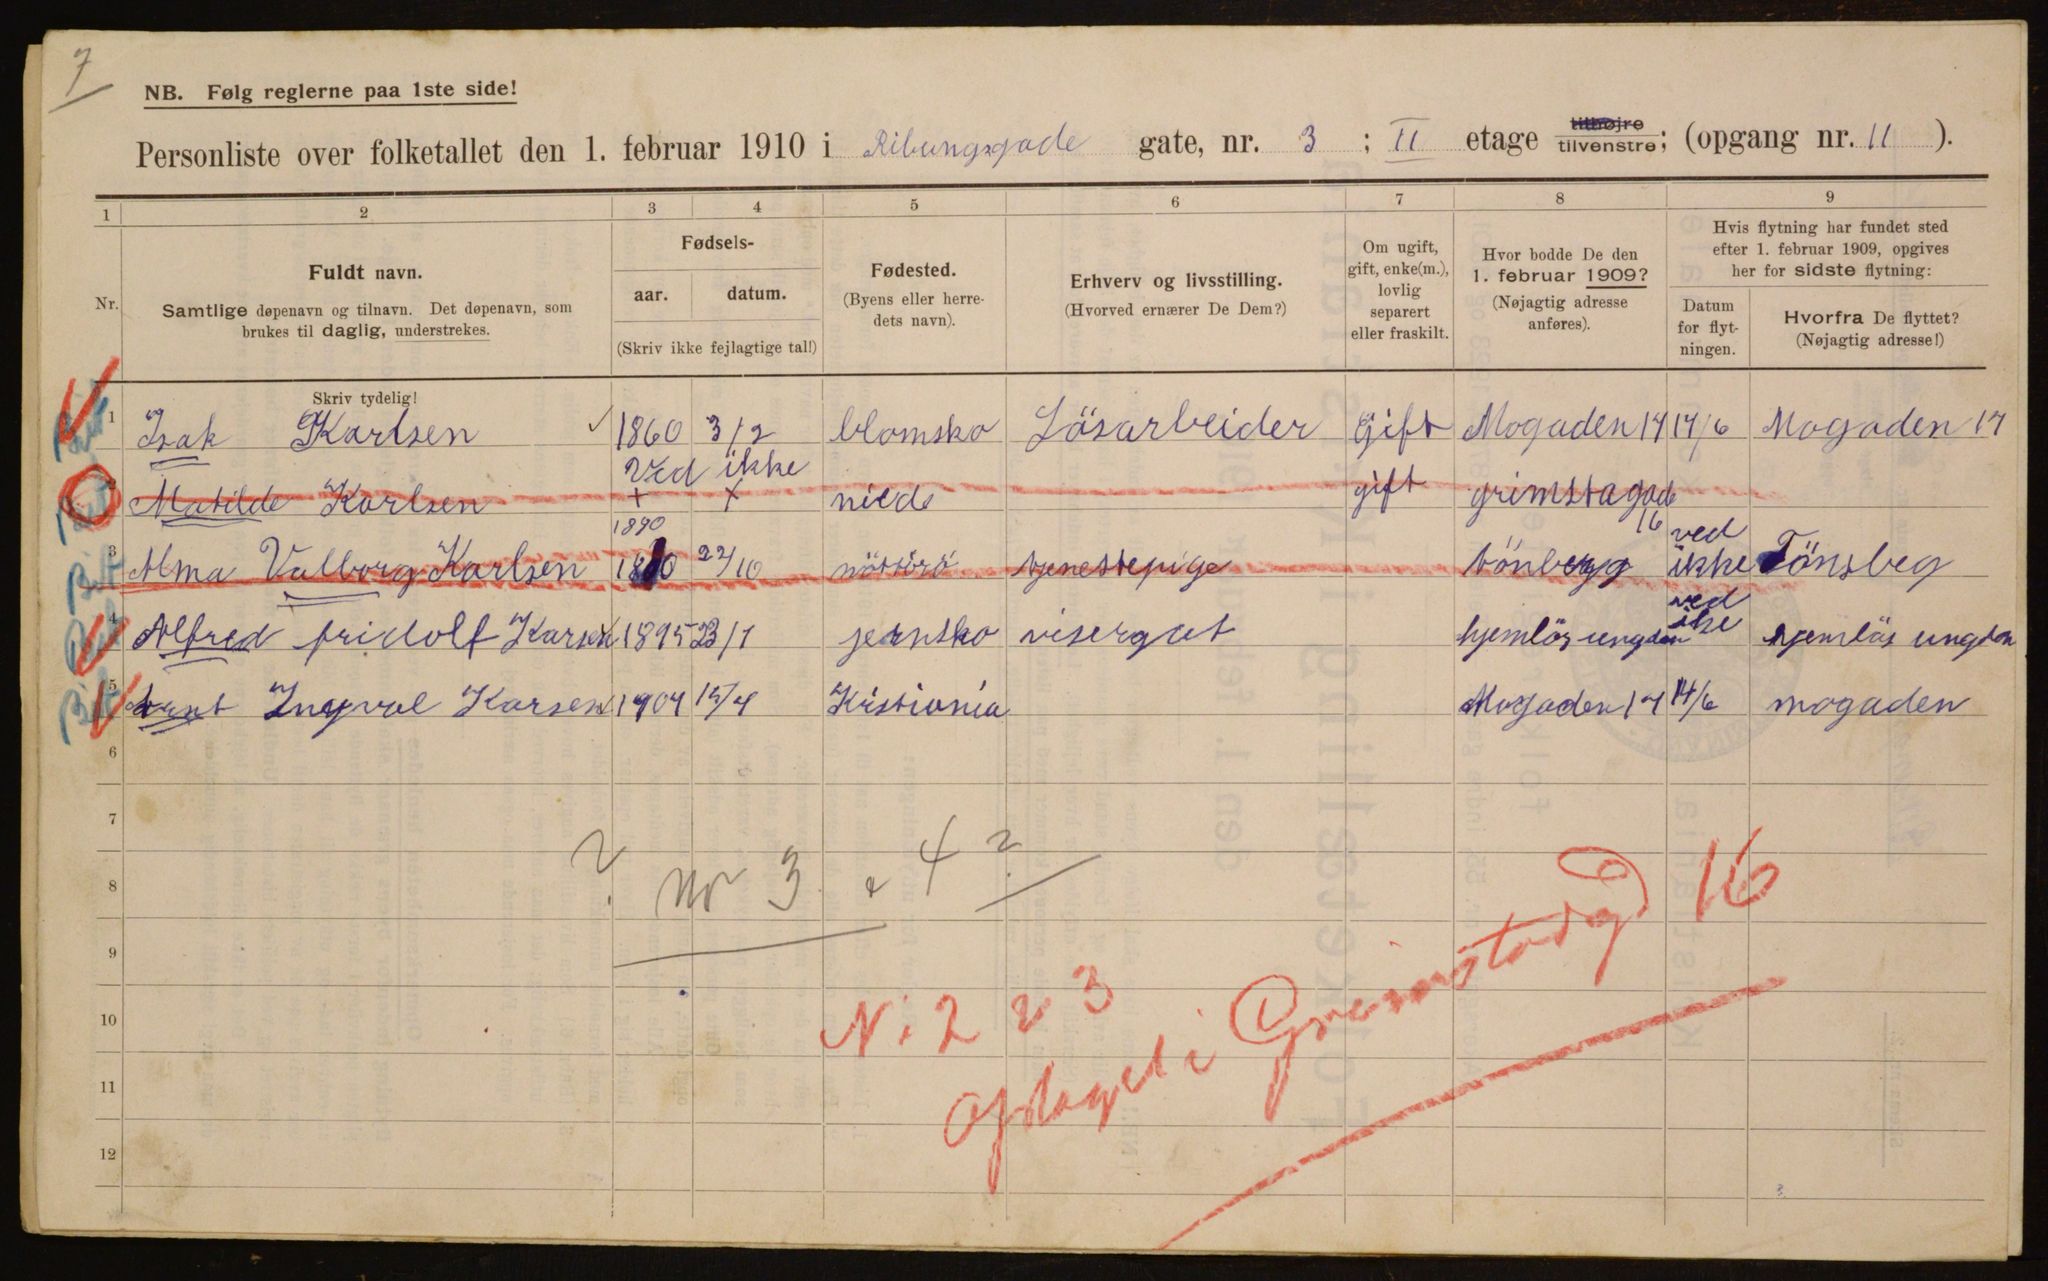 7
NB. Følg reglerne paa 1ste side!
Personliste over folketallet den 1. februar 1910 i Ribungsgade gate, nr. 3 ; II etage tilhøjre tilvenstre; (opgang nr. 11 ).
1 2 3 4 5 6 7 8 9
Nr.
Fuldt navn.
Samtlige døpenavn og tilnavn. Det døpenavn, som
brukes til daglig, understrekes.
Skriv tydelig!
Fødsels-
aar. datum.
(Skriv ikke fejlagtige tal!)
Fødested.
(Byens eller herre-
dets navn).
Erhverv og livsstilling.
(Hvorved ernærer De Dem?)
Om ugift,
gift, enke(m.),
lovlig
separert
eller fraskilt.
Hvor bodde De den
1. februar 1909?
(Nøjagtig adresse
anføres).
Hvis flytning har fundet sted
efter 1. februar 1909, opgives
her for sidste flytning:
Datum
for flyt-
ningen.
Hvorfra De flyttet?
(Nøjagtig adresse!)
1 Isak Karlsen 1860 3/2 blomsko Lösarbeider Gift Mogaden 17 14/6 Mogaden 17
Ved ikke
2 Matilde Karlsen + x nieds gift grimstagade 16
1890
3 Alma Valborg Karlsen 1810 22/10 nötterö tjenestepige tönberg ved ikke Tönsbeg
4 Alfred fridolf Karsen 1895 23/1 jernsko visergut hjemlös ungdom ved ike hjemlös ungdom
5 Arnt Ingval Karsen 1904 15/4 Kristiania Mogaden 17 14/6 mogaden
6
7
8
? Nr 3 & 4 ?
9
10
11
12
N. 2 & 3
optaget i Grimstadgd 16